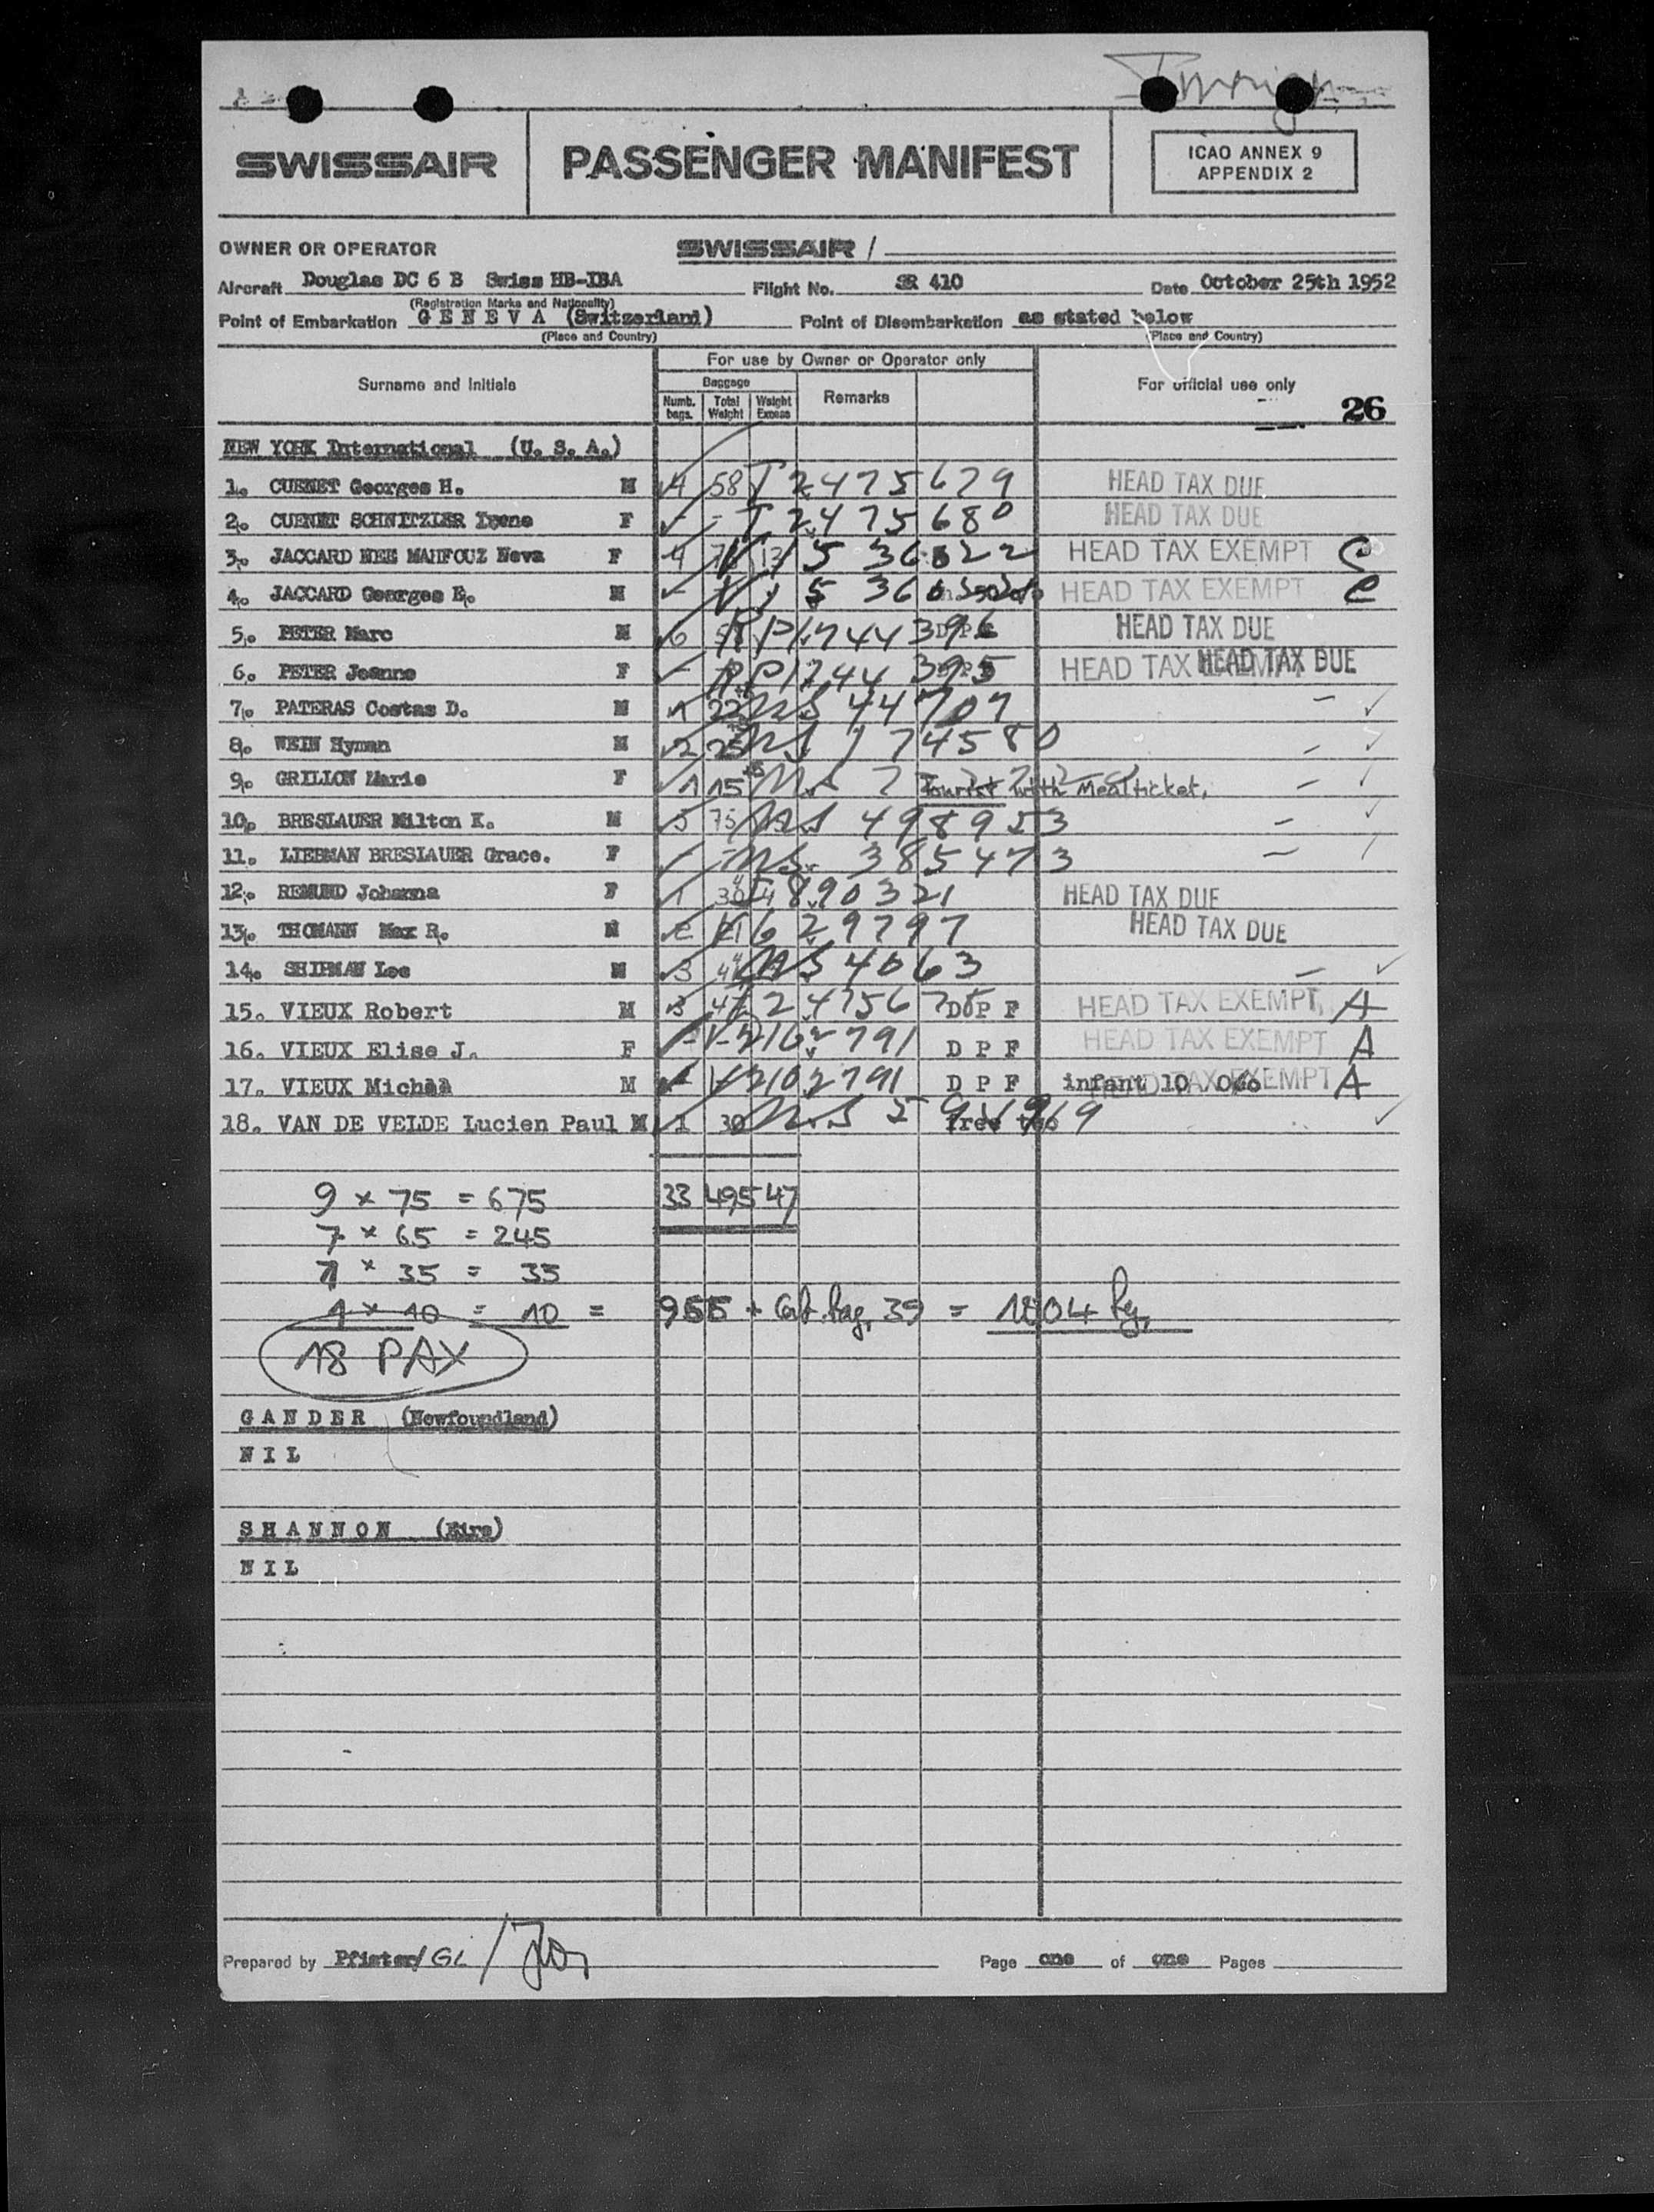 SWISSAIR PASSENGER MANIFEST ICAO ANNEX 9
APPENDIX 2
OWNER OR OPERATOR SWISSAIR /
Aircraft Douglas DC 6 B Swiss HB-IBA Flight No. SR 410 Date October 25th 1952
(Registration Marks and Nationality)
Point of Embarkation G E N E V A (Switzerland) Point of Disembarkation as stated below
(Place and Country) (Place and Country)
For use by Owner or Operator only
Surname and Initials Baggage Remarks For official use only
Numb. bags. Total Weight Weight Excess 26
NEW YORK International (U. S. A.)
1. CUENET Georges H. M 4 58 T 2475679 HEAD TAX DUE
2. CUENET SCHNITZLER Irene F - - T 2475680 HEAD TAX DUE
3. JACCARD NEE MAHFOUZ Neva F 4 13 V 5 36022 HEAD TAX EXEMPT C
4. JACCARD Georges E. M - V 5 360 HEAD TAX EXEMPT C
5. PETER Marc M 6 58 PP 1744396 D P F HEAD TAX DUE
6. PETER Jeanne F - PP 1744395 D P F HEAD TAX EXEMPT HEAD TAX DUE
7. PATERAS Costas D. M 1 22 NS 44707 - ✓
8. WEIN Hyman M 2 25 NS 174580 - ✓
9. GRILLON Marie F 1 15 NS 7 Tourist with Mealticket. - ✓
10. BRESLAUER Milton K. M 5 75 NS 498953 - ✓
11. LIEBMAN BRESLAUER Grace. F - - NS 385473 - ✓
12. REMUND Johanna F 1 30 4 890321 HEAD TAX DUE
13. THOMANN Max R. M 2 21 V 629797 HEAD TAX DUE
14. SHIPMAN Lee M 3 44 NS 4063 - ✓
15. VIEUX Robert M 3 47 2475675 D P F HEAD TAX EXEMPT A
16. VIEUX Elise J. F - - V 2162791 D P F HEAD TAX EXEMPT A
17. VIEUX Michel M - V 2102791 D P F infant 10 o/o HEAD TAX EXEMPT A
18. VAN DE VELDE Lucien Paul M 1 30 NS 5 969 free ✓
9 x 75 = 675 33 495 47
7 x 65 = 245
1 x 35 = 35
1 x 10 = 10 = 955 + Cab. bag. 39 = 1004 kg.
18 PAX
G A N D E R (Newfoundland)
N I L
S H A N N O N (Eire)
N I L
Prepared by Pfister/GL / Page one of one Pages